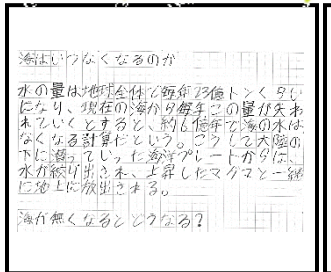 海はいつなくなるのか
水の量は地球全体で毎年23億トンくらい
になり、現在の海から毎年この量が失わ
れていくとすると、約6億年で海の水は
なくなる計算だという。こうして大陸の
下に潜っていった海洋プレートからは、
水が絞り出され、上昇したマグマと一緒
に地上に放出される。
海が無くなるとどうなる?